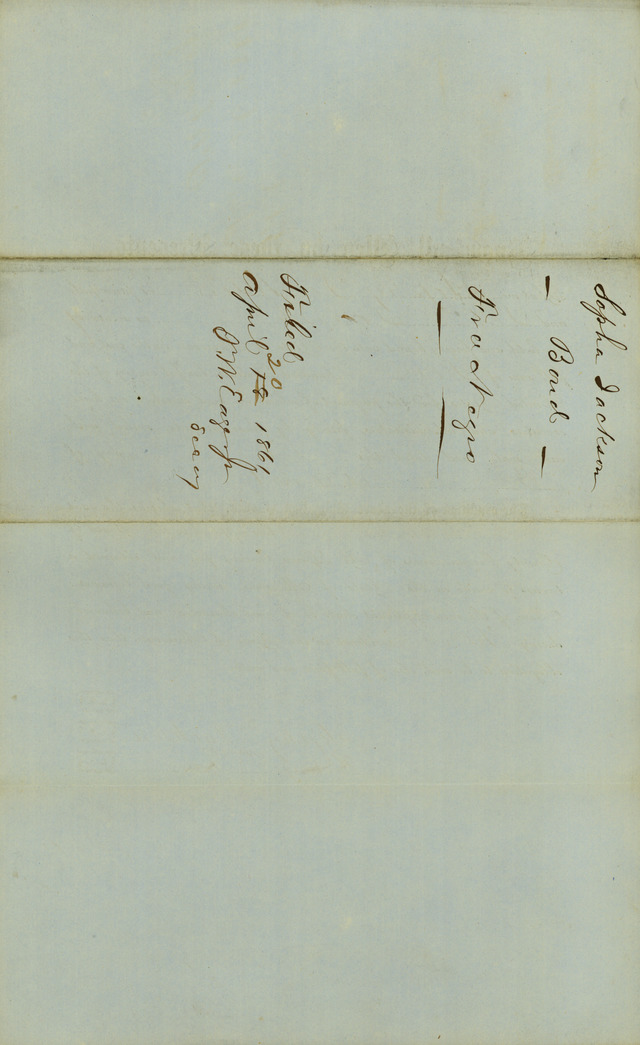 Sopha Jackson
— Bond —
Free Negro
Filed
April 20 1861
J. W. Eager Jr